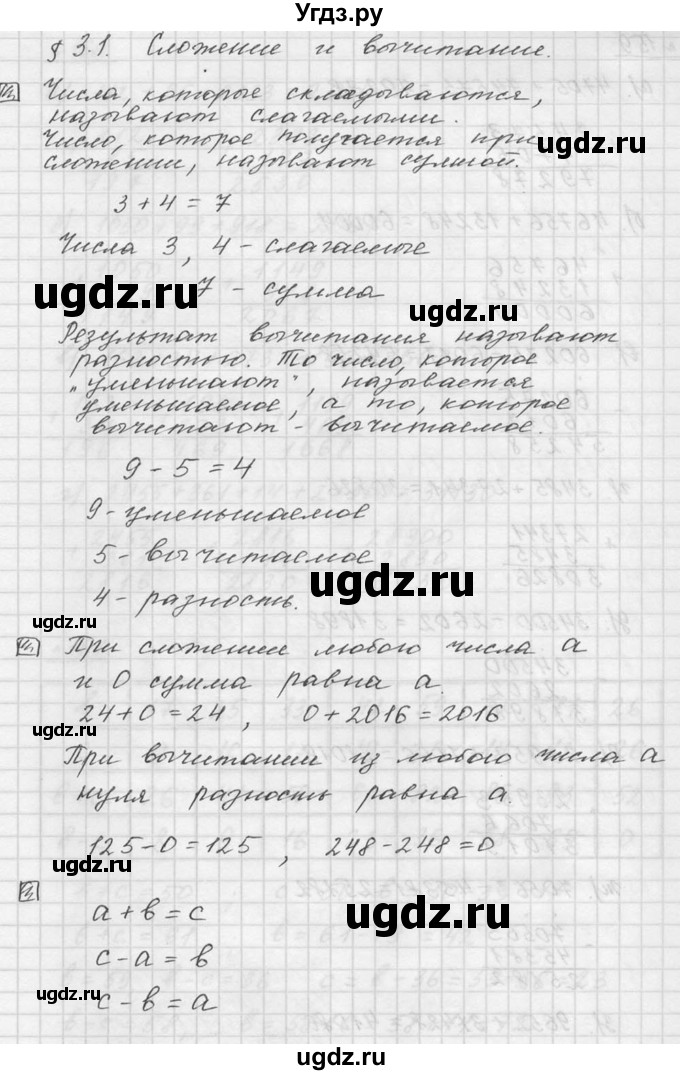 Угдз.ру
§ 3.1. Сложение и вычитание.
Числа, которые складываются,
называют слагаемыми.
Число, которое получается при
сложении, называют суммой.
ugdz.ru
3 + 4 = 7
Числа 3, 4 - слагаемые
7 - сумма
ugdz.ru
ugdz.ru
Результат вычитания называют
разностью. То число, которое
„уменьшают", называется
уменьшаемое, а то, которое
вычитают - вычитаемое.
9 - 5 = 4
9 - уменьшаемое
5 - вычитаемое
ugdz.ru
4 - разность.
ugdz.ru
При сложении любого числа a
и 0 сумма равна a.
24 + 0 = 24 , 0 + 2016 = 2016
ugdz.ru
При вычитании из любого числа a
нуля разность равна a.
125 - 0 = 125 , 248 - 248 = 0
ugdz.ru
a + b = c
ugdz.ru
c - a = b
c - b = a
ugdz.ru
ugdz.ru